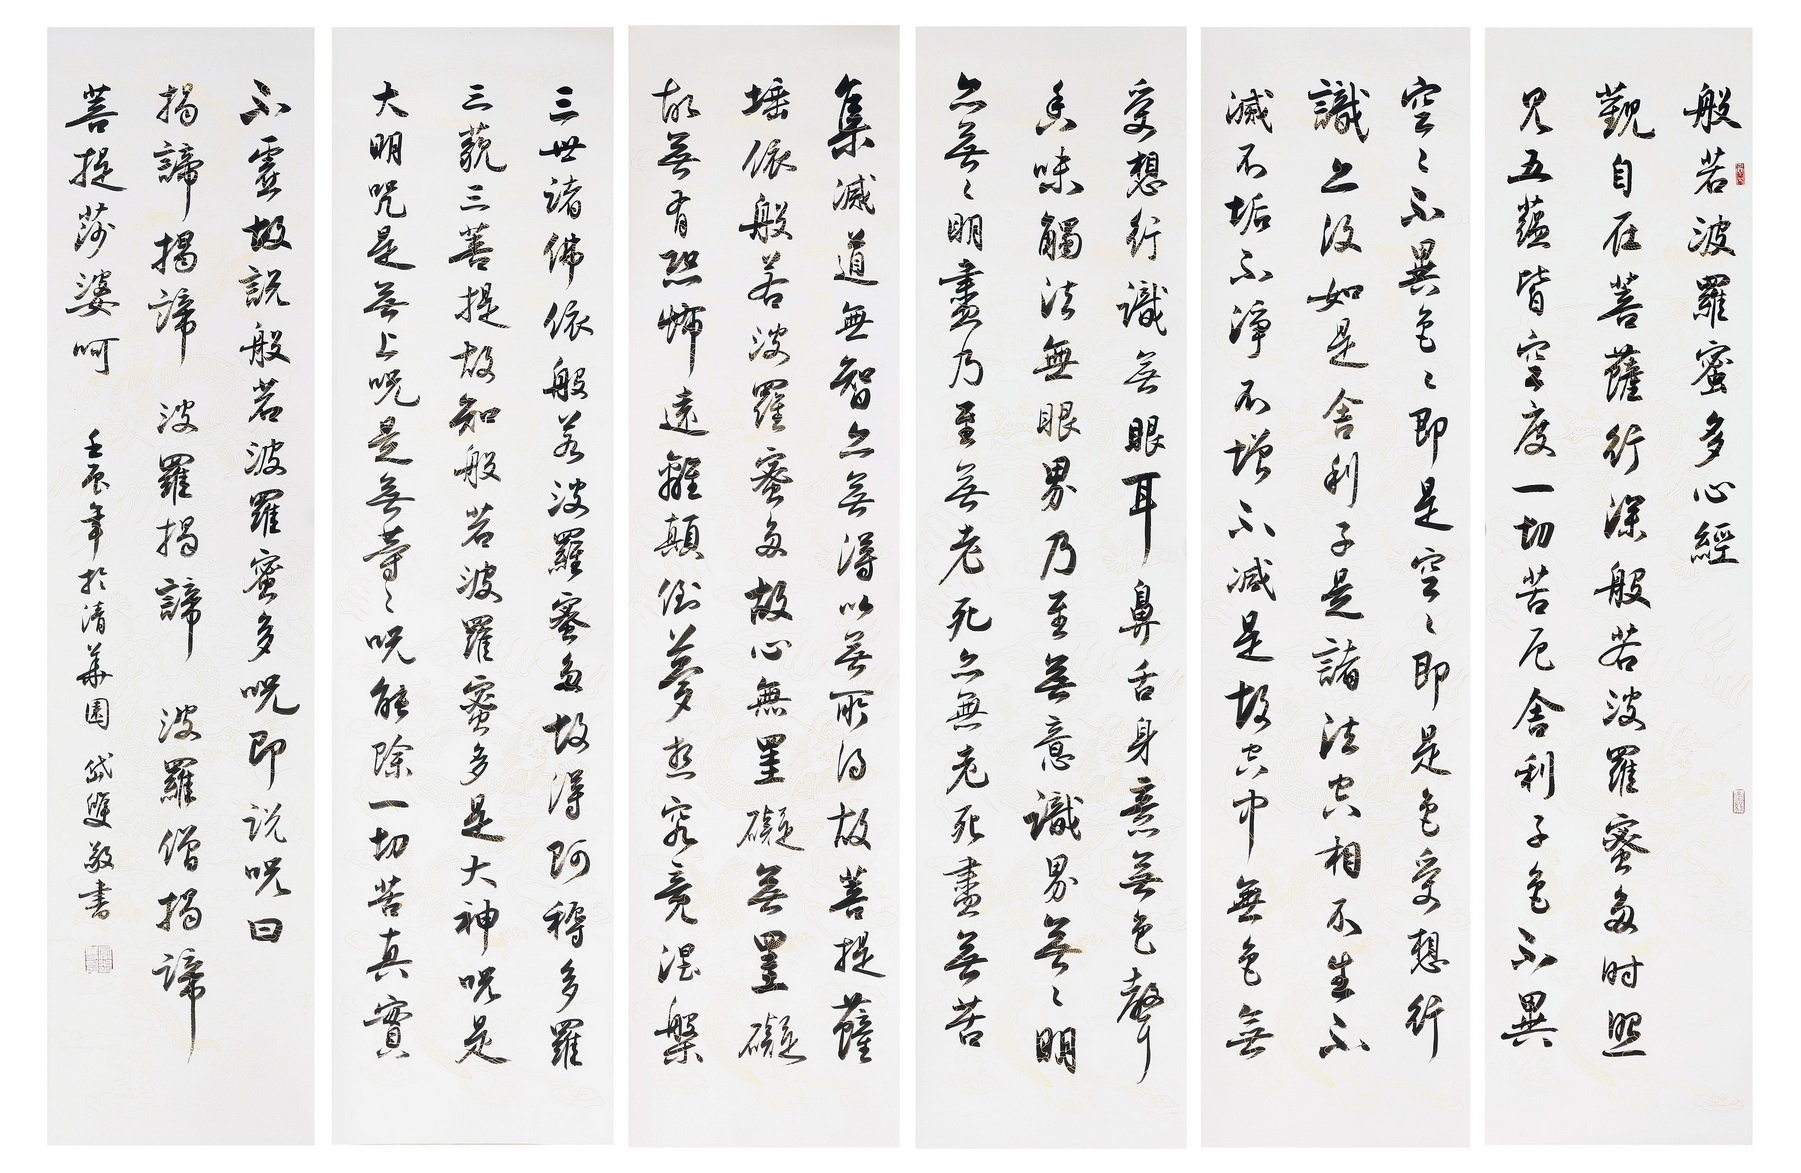 般若波羅蜜多心經
觀自在菩薩行深般若波羅蜜多时照
見五蘊皆空度一切苦厄舍利子色不異
空〻不異色〻即是空〻即是色受想行
識亦復如是舍利子是諸法空相不生不
滅不垢不淨不增不減是故空中無色無
受想行識無眼耳鼻舌身意無色聲
香味觸法無眼界乃至無意識界無〻明
亦無〻明盡乃至無老死亦無老死盡無苦
集滅道無智亦無得以無所得故菩提薩
埵依般若波羅蜜多故心無罣礙無罣礙
故無有恐怖遠離顛倒夢想究竟涅槃
三世諸佛依般若波羅蜜多故得阿耨多羅
三藐三菩提故知般若波羅蜜多是大神呪是
大明呪是無上呪是無等〻呪能除一切苦真實
不虛故說般若波羅蜜多呪即説呪曰
揭諦揭諦 波羅揭諦 波羅僧揭諦
菩提莎婆呵 壬辰年於清華園 岱雙敬書